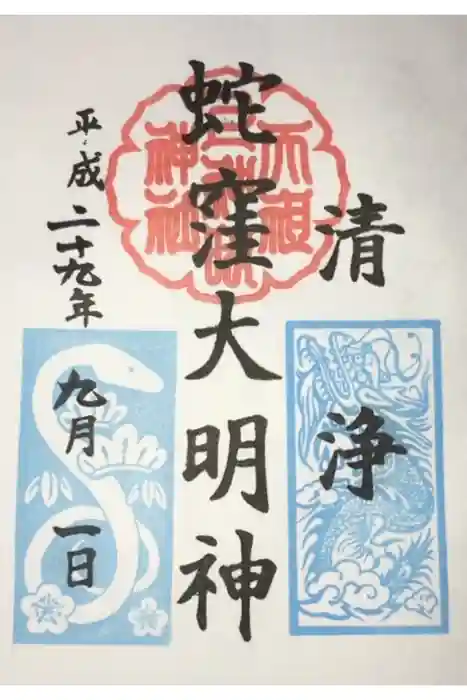 清浄
蛇窪大明神
平成二十九年
九月一日
天祖
神社